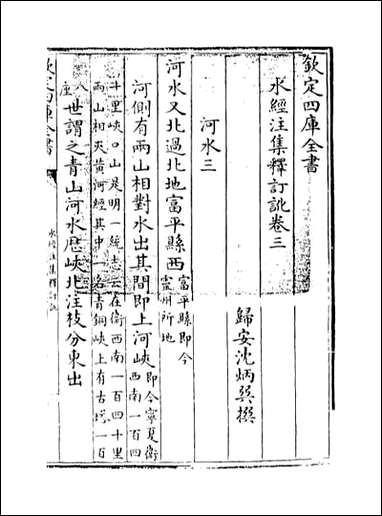 欽定四庫全書
水經注集釋訂訛卷三
歸安沈炳巽撰
河水三
河水又北過北地富平縣西富平縣即今靈州所地
河側有兩山相對水出其間即上河峽即今寧夏衛西南一百四
十里峽口山是明一統志云在衛西南一百四十里兩山相夾黃河經其中一名青銅峽上有古塔一百
八座世謂之青山河水歷峽北注枝分東出
欽定四庫全書
水經注集釋訂訛